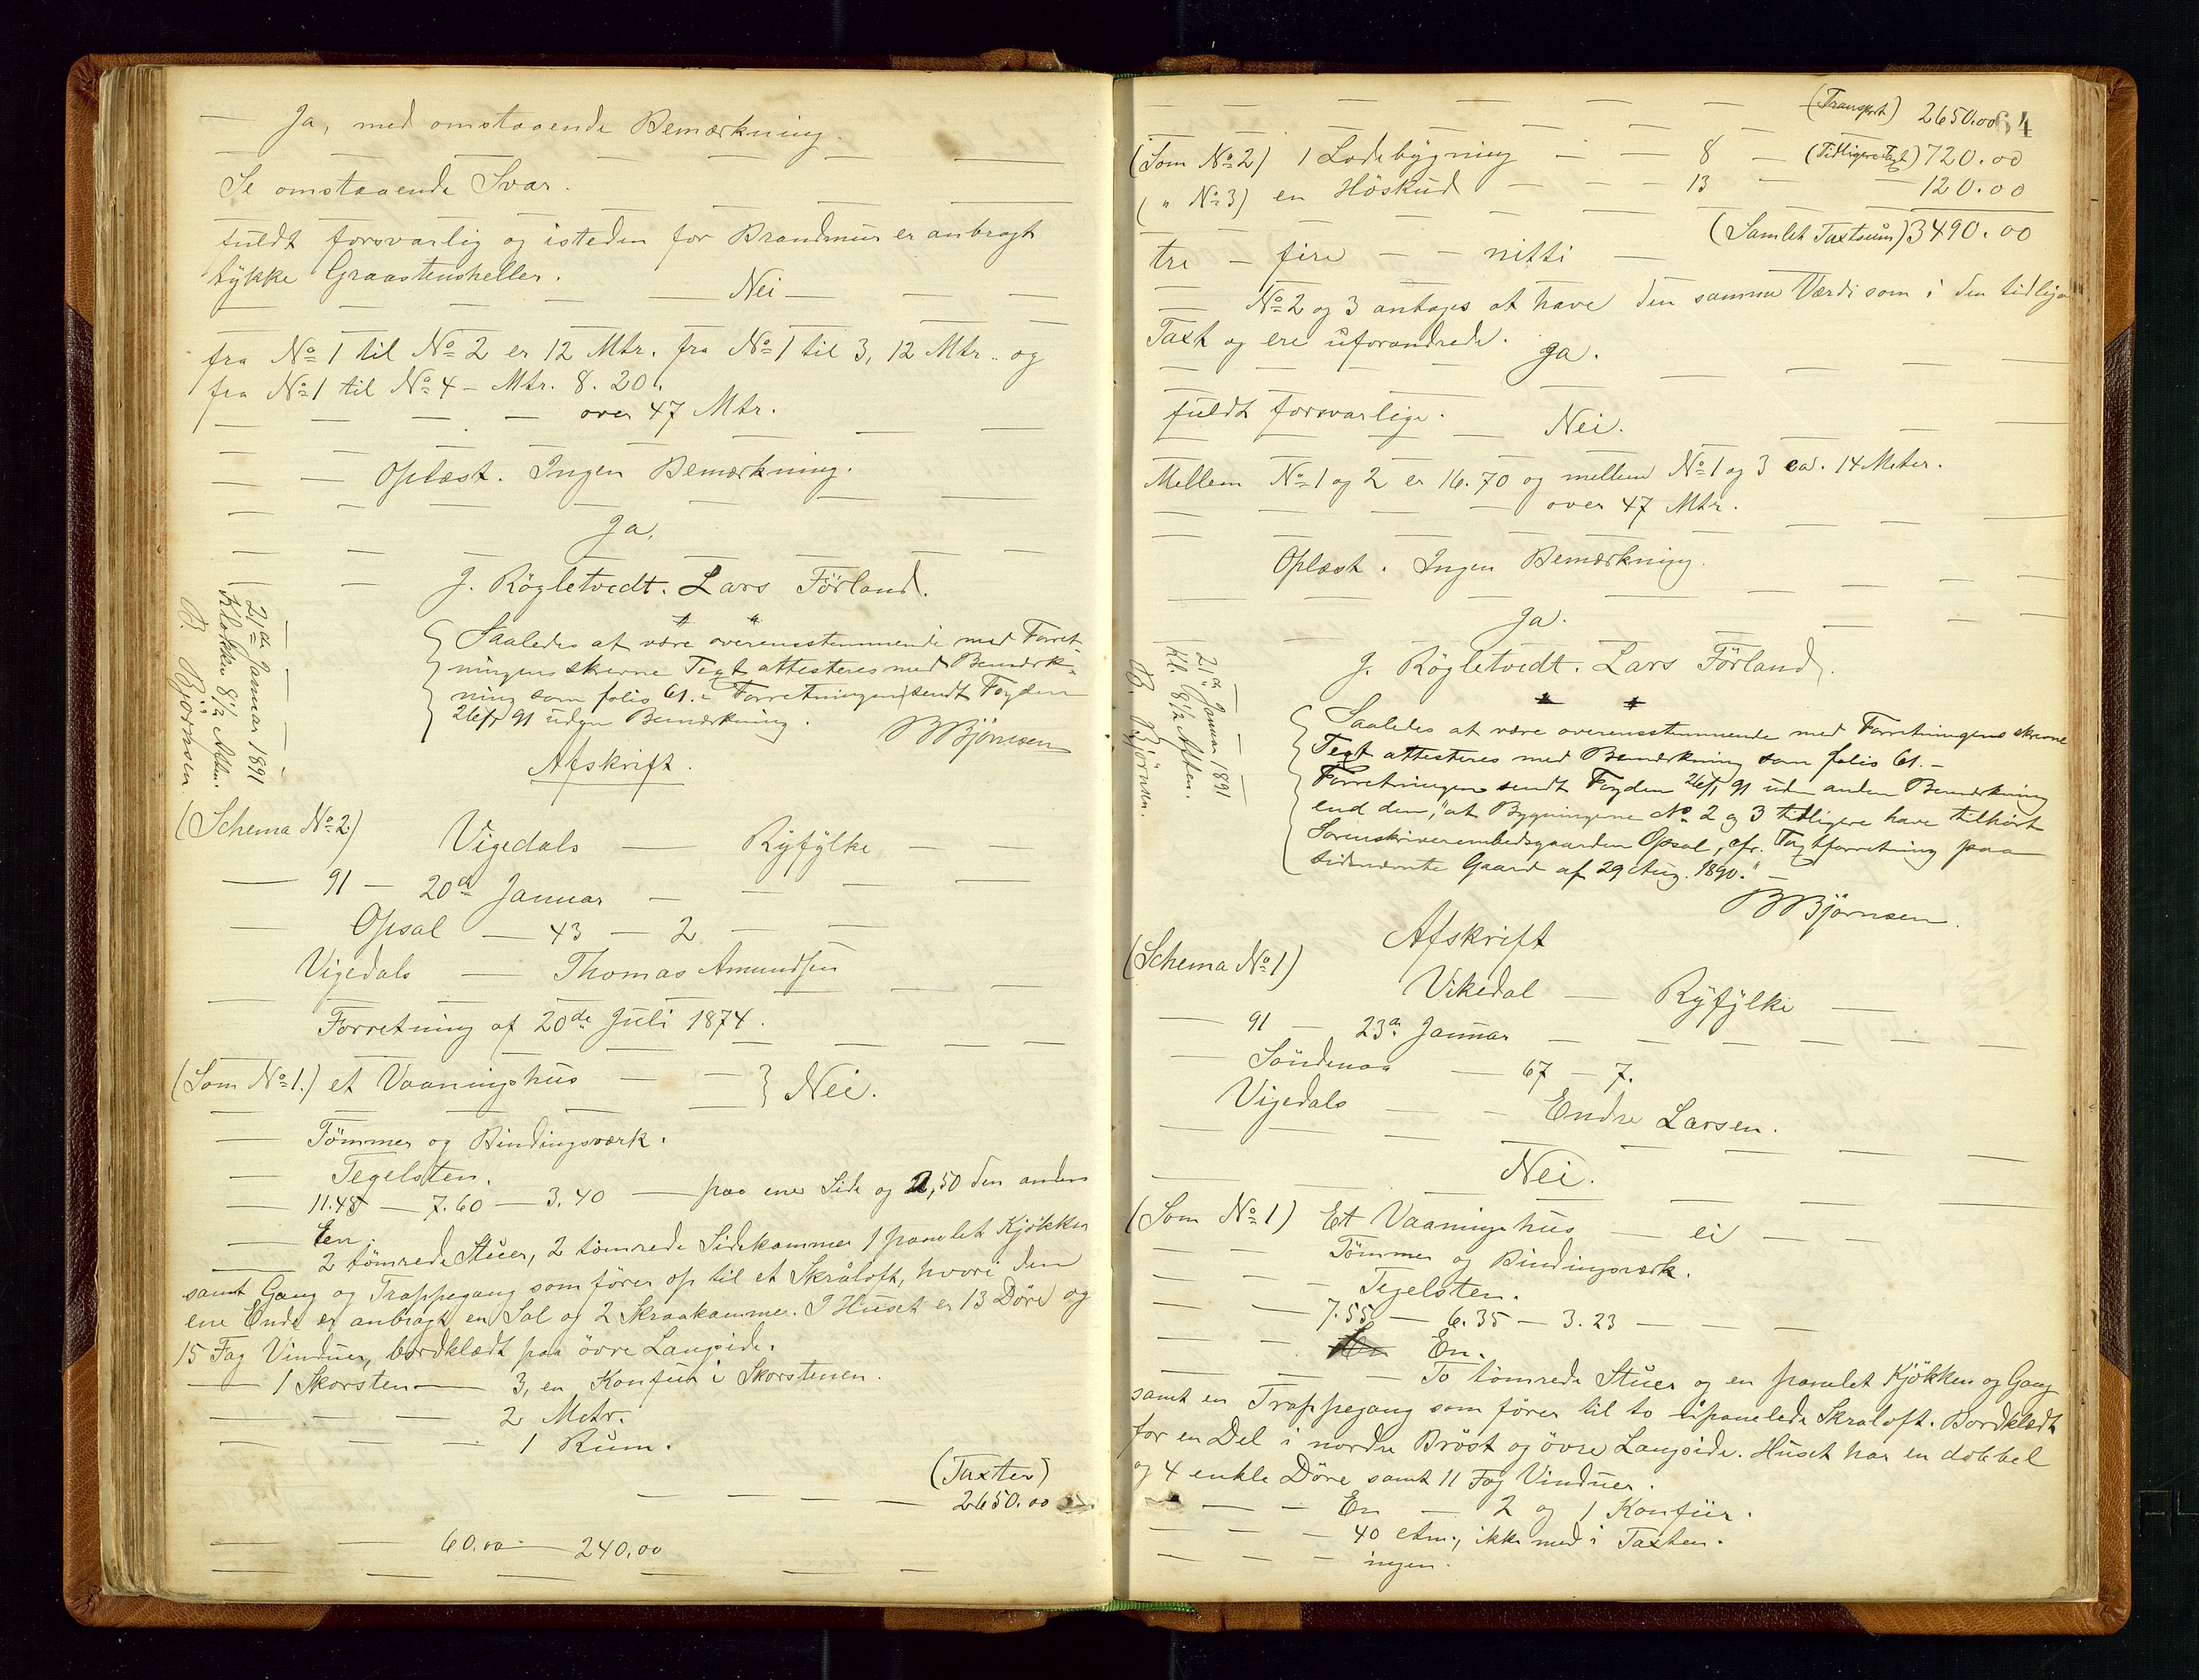 — Ja, med omstaaende Bemærkning.
Se omstaaende Svar.
fuldt forsvarlig og isteden for Brandmur er anbragt
tykke Graastensheller.
— Nei —
fra No 1 til No 2 er 12 Mtr. fra No 1 til 3, 12 Mtr. og
fra No 1 til No 4 – Mtr. 8.20.
— — — over 47 Mtr.
— — Oplæst. Ingen Bemærkning.
Ja.
J. Rögletvedt. Lars Förland.
Saaledes at være overensstemmende med Forret-
ningens skrevne Text attesteres med Bemærk-
ning som folio 61. – Forretningen sendt Fogden
26/1 91 uden Bemærkning.
BBjörnsen
21de Januar 1891
Klokken 8½ Aften.
B. Björnsen
Afskrift.
(Schema No 2)
Vigedals — Ryfylke — —
— 91 — 20de Januar —
— Opsal — 43 — 2 — —
Vigedals — Thomas Amundsen
Forretning af 20de Juli 1874.
(Som No 1.) et Vaaningshus — — } Nei.
— Tömmer og Bindingsværk.
— Tegelsten.
— 11.48 — 7.60 — 3.40 — paa ene Side og 2,50 den anden
— En.
— 2 tömrede Stuer, 2 tömrede Sidekammer 1 panelet Kjökken
samt Gang og Trappegang som förer op til et Skråloft, hvori den
ene Ende er anbragt en Sal og 2 Skraakammer. I Huset er 13 Döre og
15 Fag Vinduer, bordklædt paa övre Langside.
— 1 Skorsten — 3, en Komfur i Skorstenen.
— — — 2 Metr.
— — — 1 Rum.
(Taxter)
— — — — 2650.00
— — 60.00 — 240.00
(Transport) 2650.00
64
(Som No 2) 1 Ladebygning — — 8 — (Tidligere Taxt) 720.00
( " No 3) en Höskud — — — 13 — — 120.00
(Samlet Taxtsum) 3490.00
tre — fire — — nitti —
No 2 og 3 antages at have den samme Værdi som i den tidligere
Taxt og ere uforandrede.
Ja.
fuldt forsvarlige.
Nei.
Mellem No 1 og 2 er 16.70 og mellem No 1 og 3 ca. 14 Meter.
— — — — over 47 Mtr.
Oplæst. Ingen Bemærkning.
Ja.
J. Rögletvedt. Lars Förland.
Saaledes at være overensstemmende med Forretningens skrevne
Text attesteres med Bemærkning som folio 61. –
Forretningen sendt Fogden 26/1 91 uden anden Bemærkning
end den, "at Bygningerne No 2 og 3 tidligere have tilhört
Sorenskriverembedsgaarden Opsal, cfr. Taxtforretning paa
sidenævnte Gaard af 29 Aug. 1890." –
BBjörnsen.
21de Januar 1891
Kl. 8½ Aften.
B. Björnsen.
Afskrift
(Schema No 1)
Vikedal — Ryfylke —
— 91 — 23de Januar — — — —
— Söndenaa — 67 — 7.
Vigedals — — Endre Larsen.
Nei.
(Som No 1) Et Vaaningshus — ei — —
— — Tömmer og Bindingsværk.
— — — Tegelsten.
— — 7.55 — 6.35 — 3.23 — — —
— — En.
— — To tömrede Stuer og en panelet Kjökken og Gang
samt en Trappegang som förer til to upanelede Skraloft. Bordklædt
for en Del i nordre Bröst og övre Langside. Huset har en dobbel
og 4 enkle Döre samt 11 Fag Vinduer.
— — En — 2 og 1 Komfür.
— — — 40 ctm., ikke med i Taxten.
— — — ingen.